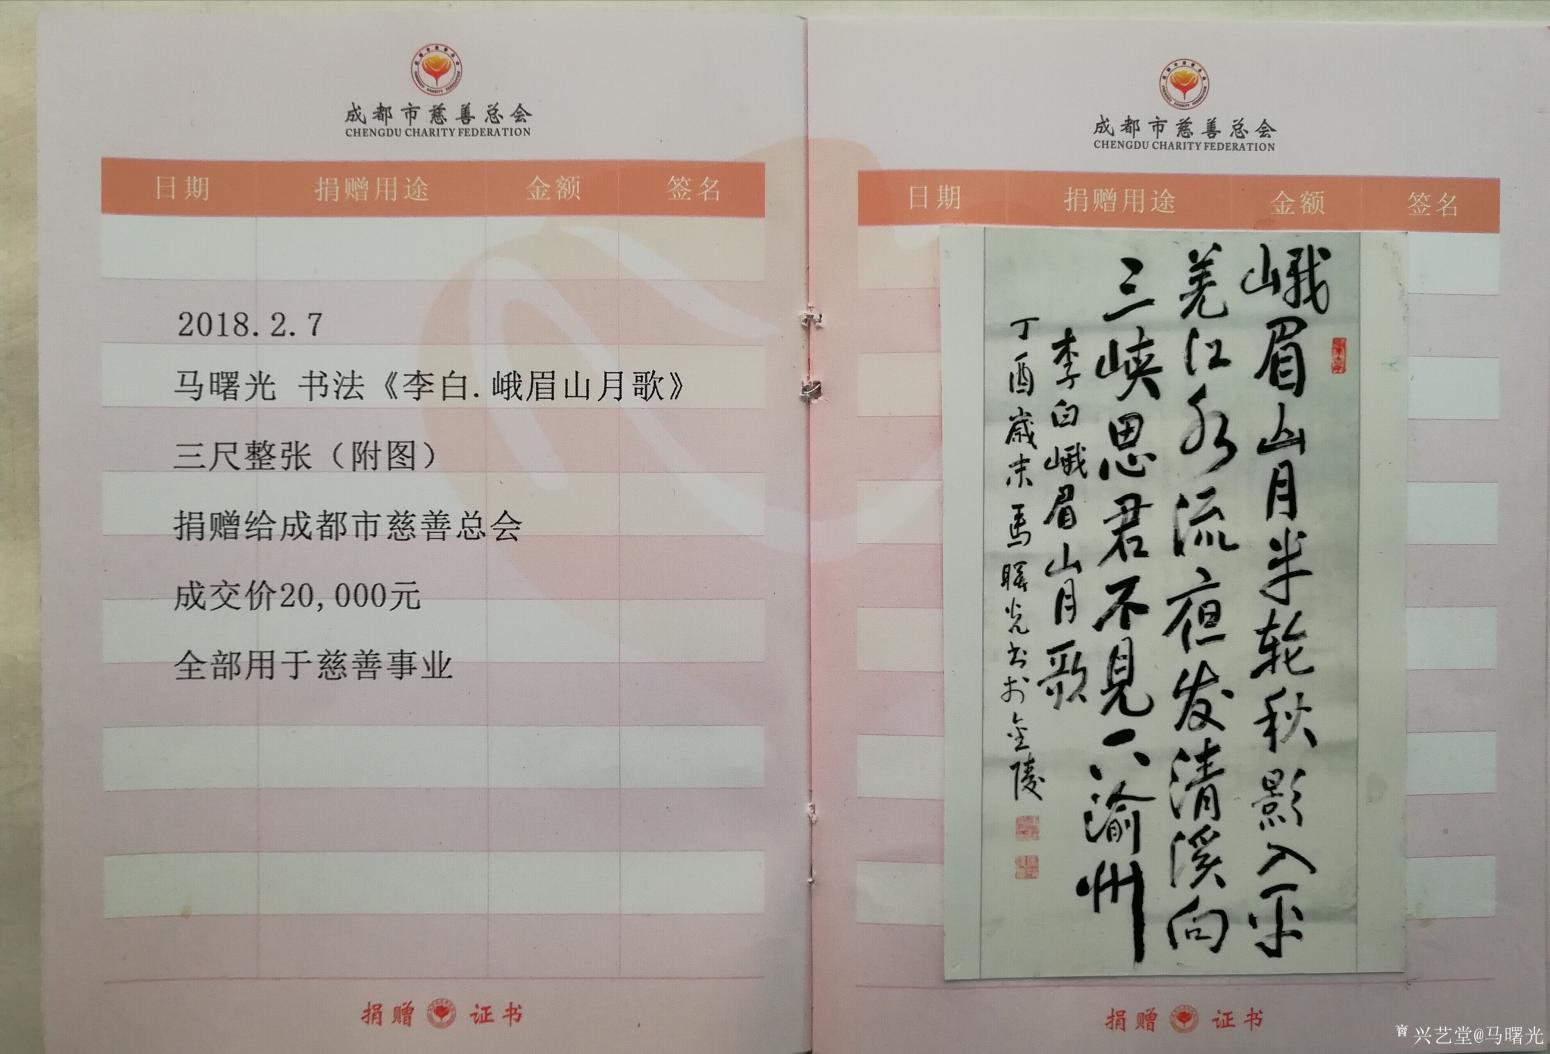 成都市慈善总会
CHENGDU CHARITY FEDERATION
日期 捐赠用途 金额 签名
2018.2.7
马曙光 书法《李白.峨眉山月歌》
三尺整张（附图）
捐赠给成都市慈善总会
成交价20,000元
全部用于慈善事业
捐赠 证书
成都市慈善总会
CHENGDU CHARITY FEDERATION
日期 捐赠用途 金额 签名
峨眉山月半轮秋影入平
羌江水流夜发清溪向
三峡思君不见下渝州
李白峨眉山月歌
丁酉岁末马曙光书于金陵
捐赠 证书
兴艺堂@马曙光